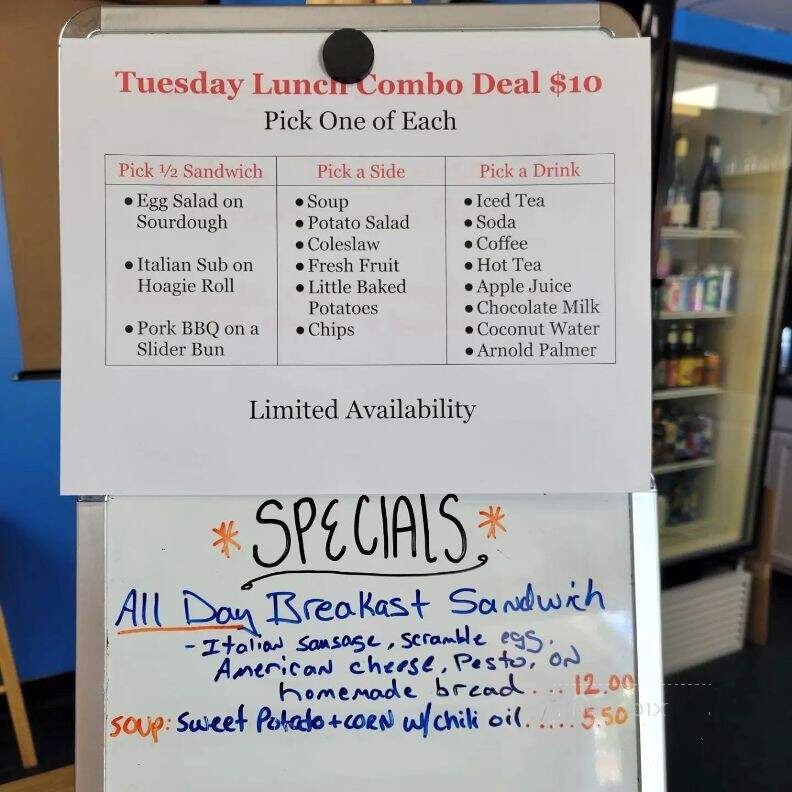 Tuesday Lunch Combo Deal $10
Pick One of Each
Pick ½ Sandwich
• Egg Salad on
Sourdough
• Italian Sub on
Hoagie Roll
• Pork BBQ on a
Slider Bun
Pick a Side
• Soup
• Potato Salad
• Coleslaw
• Fresh Fruit
• Little Baked
Potatoes
• Chips
Pick a Drink
• Iced Tea
• Soda
• Coffee
• Hot Tea
• Apple Juice
• Chocolate Milk
• Coconut Water
• Arnold Palmer
Limited Availability
* SPECIALS *
All Day Breakast Sandwich
- Italian sausage, scramble egg,
American cheese, Pesto, on
homemade bread... 12.00
SOUP: Sweet Potato + CORN w/chili oil..... 5.50